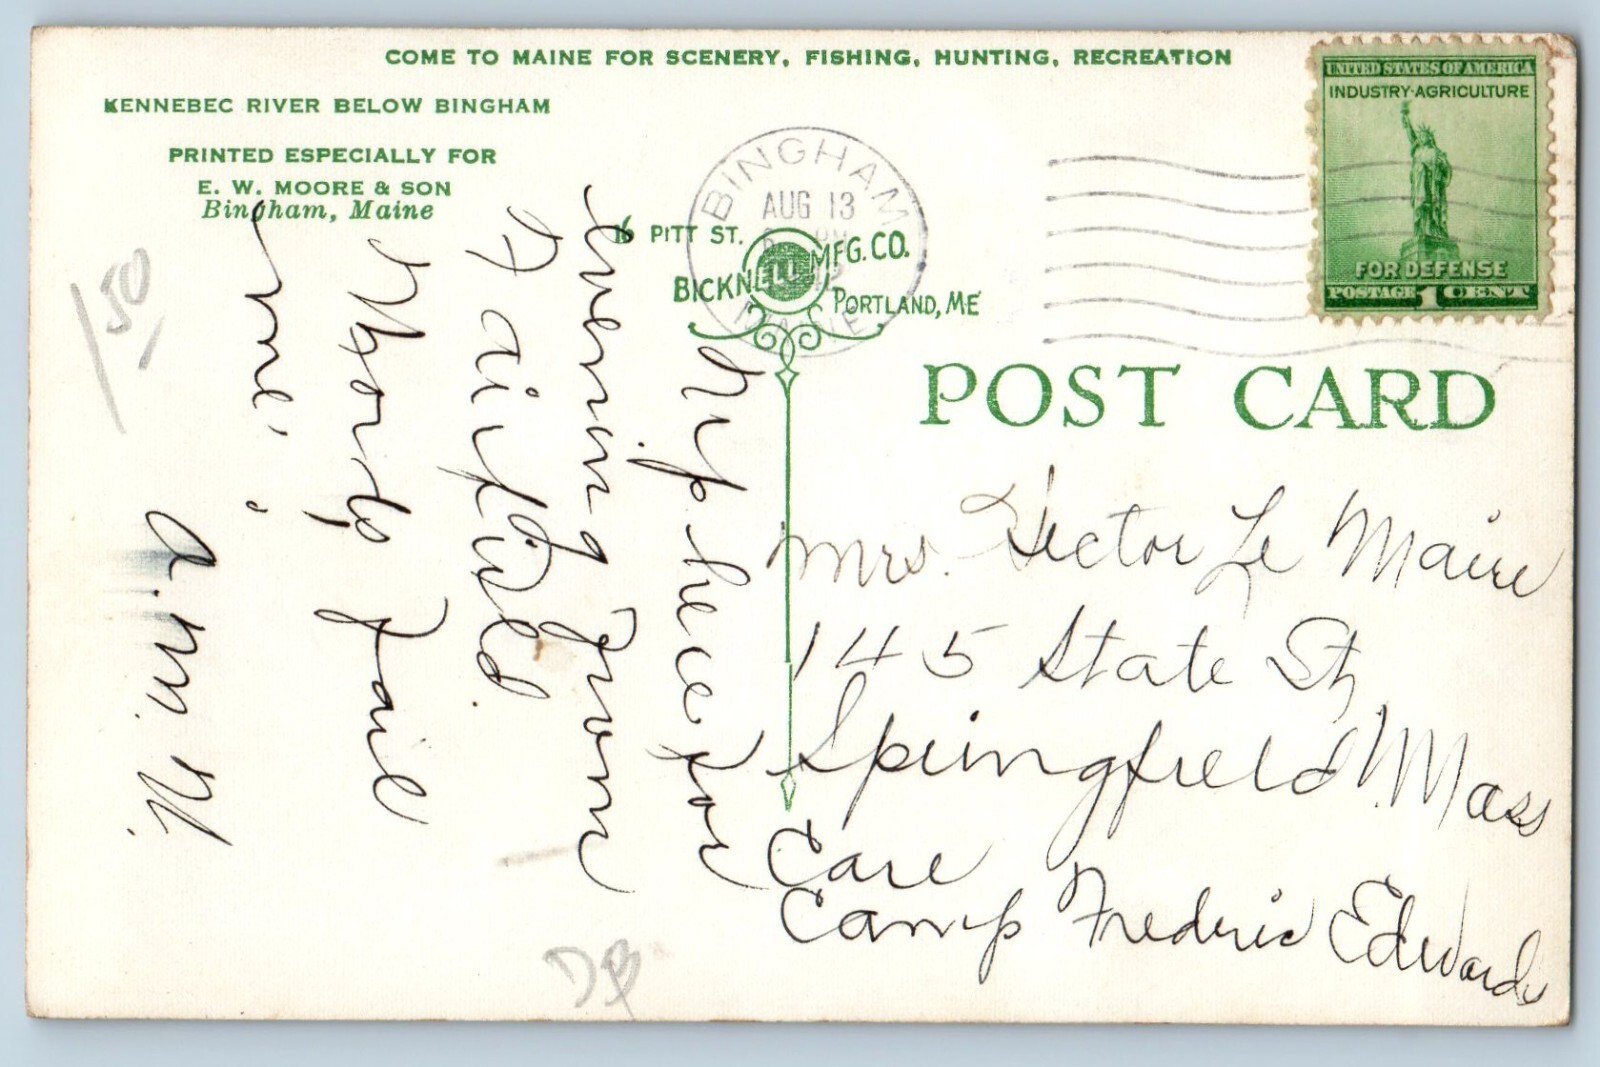 COME TO MAINE FOR SCENERY, FISHING, HUNTING, RECREATION
KENNEBEC RIVER BELOW BINGHAM
PRINTED ESPECIALLY FOR
E. W. MOORE & SON
Bingham, Maine
16 PITT ST.
BICKNELL MFG. CO.
PORTLAND, ME
BINGHAM
AUG 13
MAINE
UNITED STATES OF AMERICA
INDUSTRY·AGRICULTURE
FOR DEFENSE
POSTAGE 1 CENT
POST CARD
Up here for
evening from
Fairfield.
Words fail
me!
A. M. N.
Mrs. Hector Le Maire
145 State St,
Springfield, Mass
Care
Camp Frederic Edwards
1 50
DB